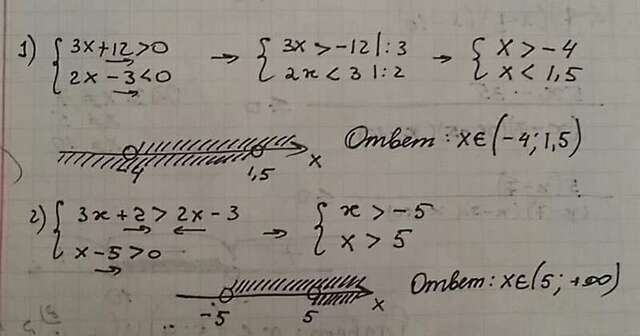 1) { 3x+12>0 → { 3x>-12 |:3 → { x>-4
2x-3<0 2x<3 |:2 x<1,5
-4 1,5 x Ответ: x∈(-4;1,5)
2) { 3x+2>2x-3 → { x>-5
x-5>0 x>5
-5 5 x Ответ: x∈(5; +∞)